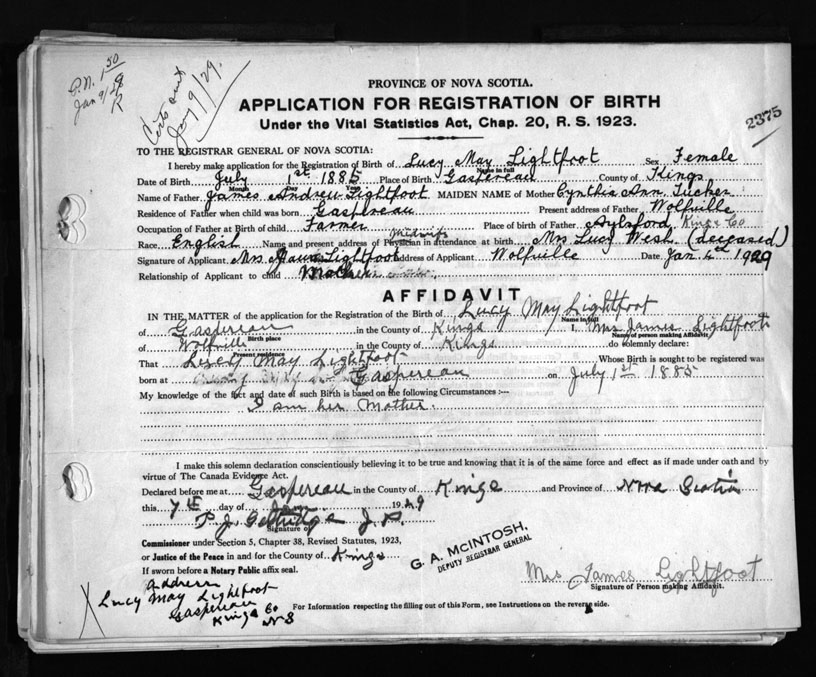 P.N. 1 50
Jan 9/29
R
Jan 9/29.
PROVINCE OF NOVA SCOTIA.
APPLICATION FOR REGISTRATION OF BIRTH
Under the Vital Statistics Act, Chap. 20, R. S. 1923.
2375
TO THE REGISTRAR GENERAL OF NOVA SCOTIA:
I hereby make application for the Registration of Birth of Lucy May Lightfoot Sex Female
Name in full
Date of Birth July 1st 1885 Place of Birth Gaspereau County of Kings
Month Day Year
Name of Father James Andrew Lightfoot MAIDEN NAME of Mother Cynthia Ann Tucker
Residence of Father when child was born Gaspereau Present address of Father Wolfville
Occupation of Father at Birth of child Farmer Place of birth of Father Aylsford Kings Co
Midwife
Race English Name and present address of Physician in attendance at birth Mrs Lucy (deceased)
Signature of Applicant Mrs James Lightfoot Address of Applicant Wolfville Date Jan 4 1929
Relationship of Applicant to child Mother
AFFIDAVIT
IN THE MATTER of the application for the Registration of Birth of Lucy May Lightfoot
Name in full
of Gaspereau in the County of Kings I, Mrs James Lightfoot
Birth place Name of person making Affidavit
of Wolfville in the County of Kings do solemnly declare:
Present residence
That Lucy May Lightfoot Whose Birth is sought to be registered was
born at Gaspereau on July 1st 1885
My knowledge of the fact and date of such Birth is based on the following Circumstances :—
I am her Mother.
I make this solemn declaration conscientiously believing it to be true and knowing that it is of the same force and effect as if made under oath and by
virtue of The Canada Evidence Act.
Declared before me at Gaspereau in the County of Kings and Province of Nova Scotia
this 7th day of Jan. 1929
P. J. J. P.
Signature of
Commissioner under Section 5, Chapter 38, Revised Statutes, 1923,
or Justice of the Peace in and for the County of Kings
If sworn before a Notary Public affix seal.
G. A. McINTOSH,
DEPUTY REGISTRAR GENERAL
Mrs James Lightfoot
Signature of Person making Affidavit.
Address
Lucy May Lightfoot
Gaspereau
Kings Co
N S
For Information respecting the filling out of this Form, see Instructions on the reverse side.